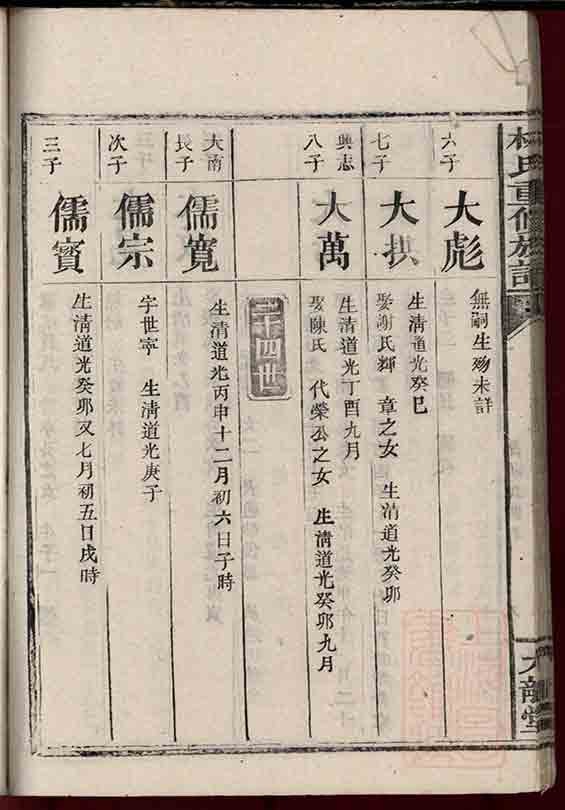 氏重修族譜
六龍堂
六子
大彪
無嗣生歿未詳
七子
大拱
生清道光癸巳
娶謝氏輝章之女 生清道光癸卯
興志
八子
大萬
生清道光丁酉九月
娶陳氏 代榮公之女 生清道光癸卯九月
二十四世
大南
長子
儒寬
生清道光丙申十二月初六日子時
次子
儒宗
字世寧 生清道光庚子
三子
儒賓
生清道光癸卯又七月初五日戌時